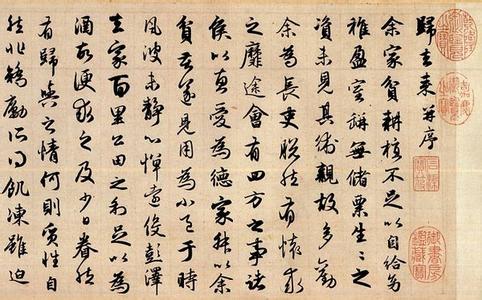 歸去來并序
余家貧耕植不足以自給幼
稚盈室缾無儲粟生生之
資未見其術親故多勸
余為長吏脫然有懷求
之靡途會有四方之事諸
侯以惠愛為德家叔以余
貧苦遂見用為小邑于時
風波未靜心憚遠役彭澤
去家百里公田之利足以為
酒故便求之及少日眷然
有歸與之情何則質性自
然非矯勵所得飢凍雖迫
嘉慶御覽之寶
御書房鑑藏寶